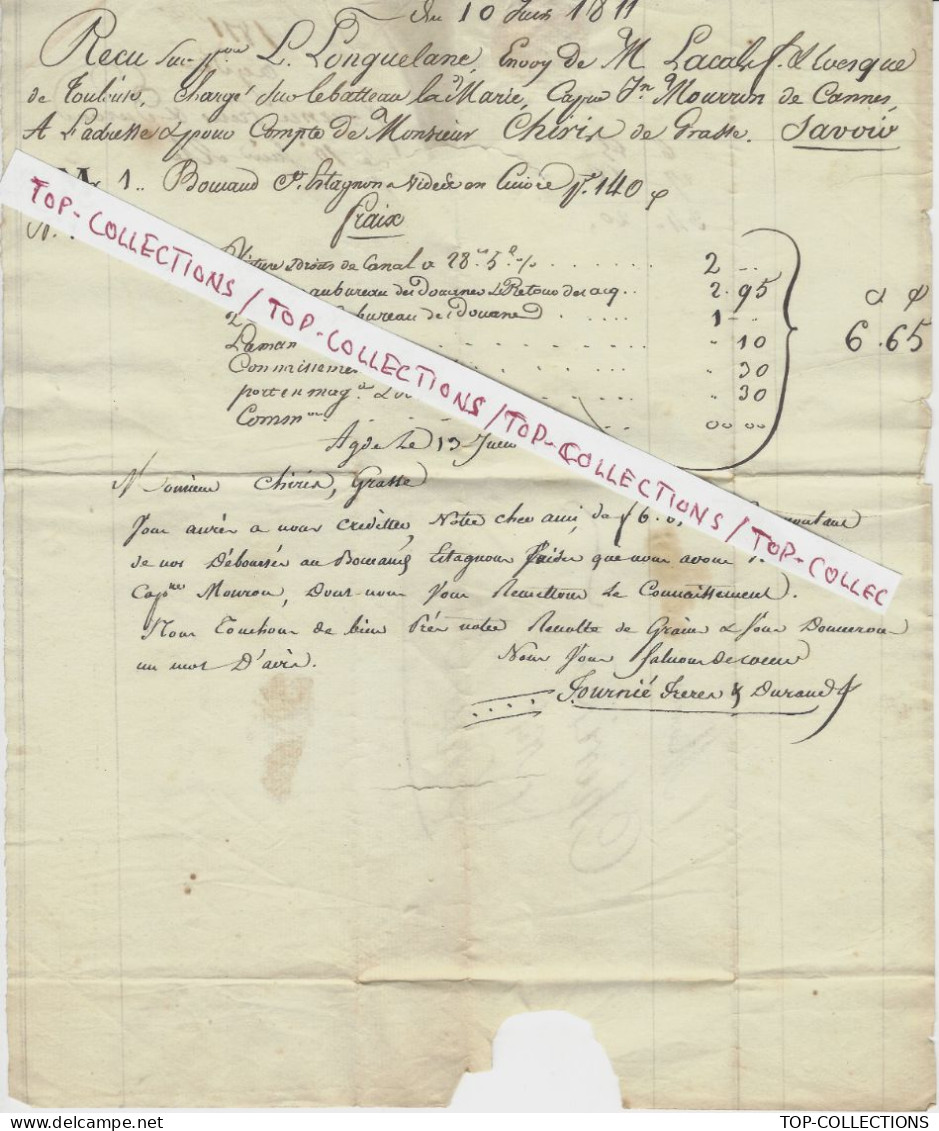 du 10 Juin 1811
Recu sur pne L. Longuelane, Envoy de M Lacal
de Toulouse, Chargé sur le batteau la Marie, Capne Jn Mourron de Cannes,
A Ladresse & pour Compte de Monsieur Chiris de Grasse. Savoir
1.. Estagnon en Cuivre 140
fraix
Voiture & droits de Canal a 28 5 % 2 ..
au bureau des Douanes & Retour des acq 2.95
bureau de Douane 1 ..
Laman 10
Connissement 30
port en mag. 30
6.65
Comm.on
Agde Le 13 Juin
Monsieur Chiris, Grasse
Vous aurés a nous créditer, Notre cher ami, de f 6. montant
de nos Déboursés au Estagnons que nous avons
Capne Mouron, Dont nous Vous Remettons Le Connaissement.
Nous Touchons de bien Prés notre Recolte de Grains & Vous Donnerons
un mot D'avis. Nous Vous Saluons de coeur
Fournié freres & Durand
TOP-COLLECTIONS / TOP-COLLECTIONS / TOP-COLLECTIONS / TOP-COLLEC
TOP-COLLECTIONS